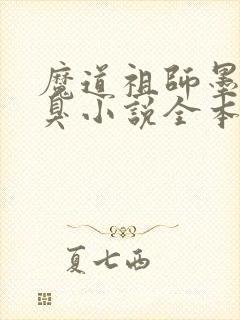 魔道祖師墨
臭小説全本
夏七西